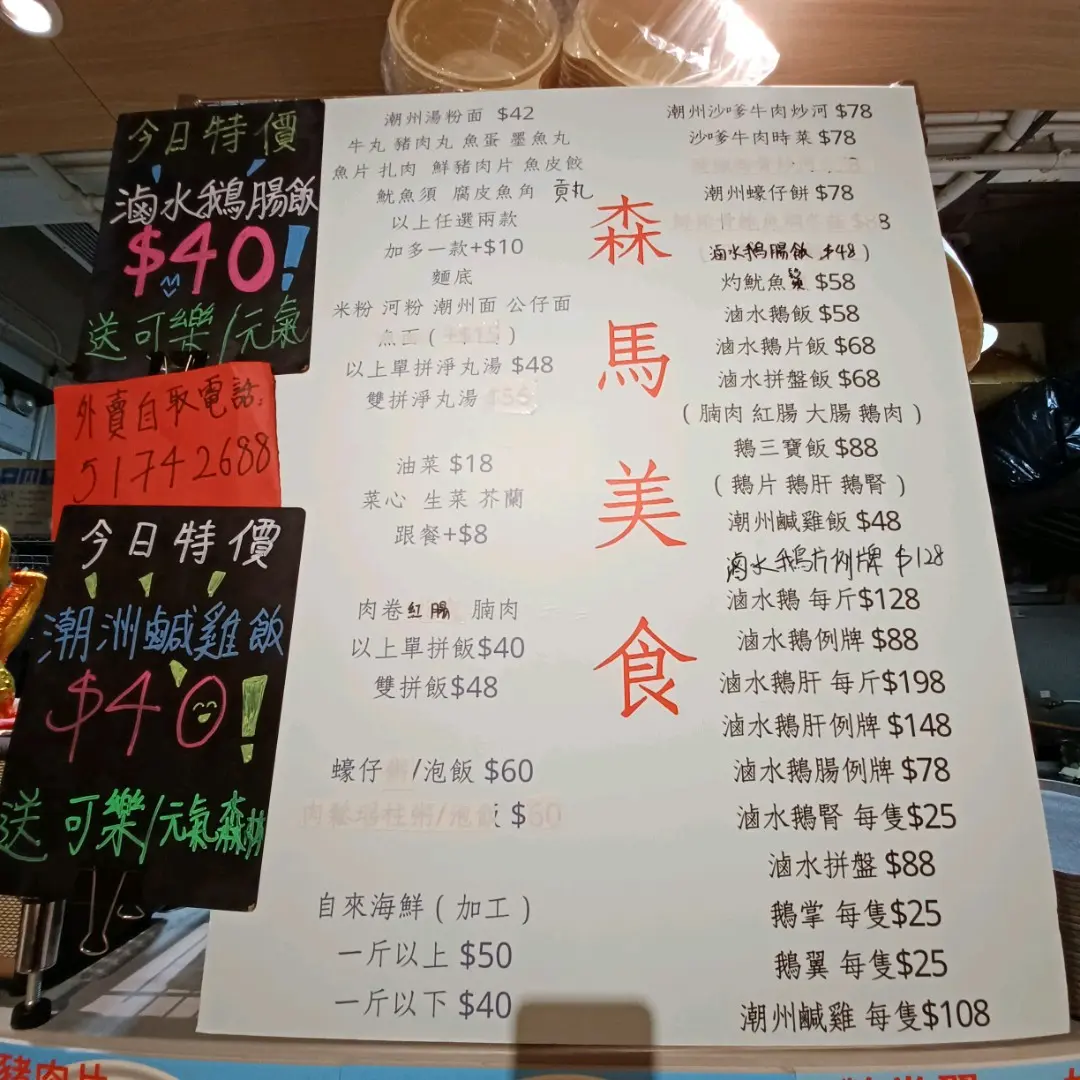 今日特價
滷水鵝腸飯
$40!
送可樂/元氣
外賣自取電話:
51742688
今日特價
潮洲鹹雞飯
$40!
送可樂/元氣森林
潮州湯粉面 $42
牛丸 豬肉丸 魚蛋 墨魚丸
魚片 扎肉 鮮豬肉片 魚皮餃
魷魚須 腐皮魚角 貢丸
以上任選兩款
加多一款+$10
麵底
米粉 河粉 潮州面 公仔面
魚面 ( +$15 )
以上單拼淨丸湯 $48
雙拼淨丸湯 $56
油菜 $18
菜心 生菜 芥蘭
跟餐+$8
肉卷 紅腸 腩肉
以上單拼飯$40
雙拼飯$48
蠔仔粥/泡飯 $60
/泡飯 $60
自來海鮮 ( 加工 )
一斤以上 $50
一斤以下 $40
森馬美食
潮州沙嗲牛肉炒河 $78
沙嗲牛肉時菜 $78
潮州蠔仔餅 $78
(滷水鵝腸飯 $48)
灼魷魚鬚 $58
滷水鵝飯 $58
滷水鵝片飯 $68
滷水拼盤飯 $68
( 腩肉 紅腸 大腸 鵝肉 )
鵝三寶飯 $88
( 鵝片 鵝肝 鵝腎 )
潮州鹹雞飯 $48
滷水鵝片例牌 $128
滷水鵝 每斤$128
滷水鵝例牌 $88
滷水鵝肝 每斤$198
滷水鵝肝例牌 $148
滷水鵝腸例牌 $78
滷水鵝腎 每隻$25
滷水拼盤 $88
鵝掌 每隻$25
鵝翼 每隻$25
潮州鹹雞 每隻$108
豬肉片